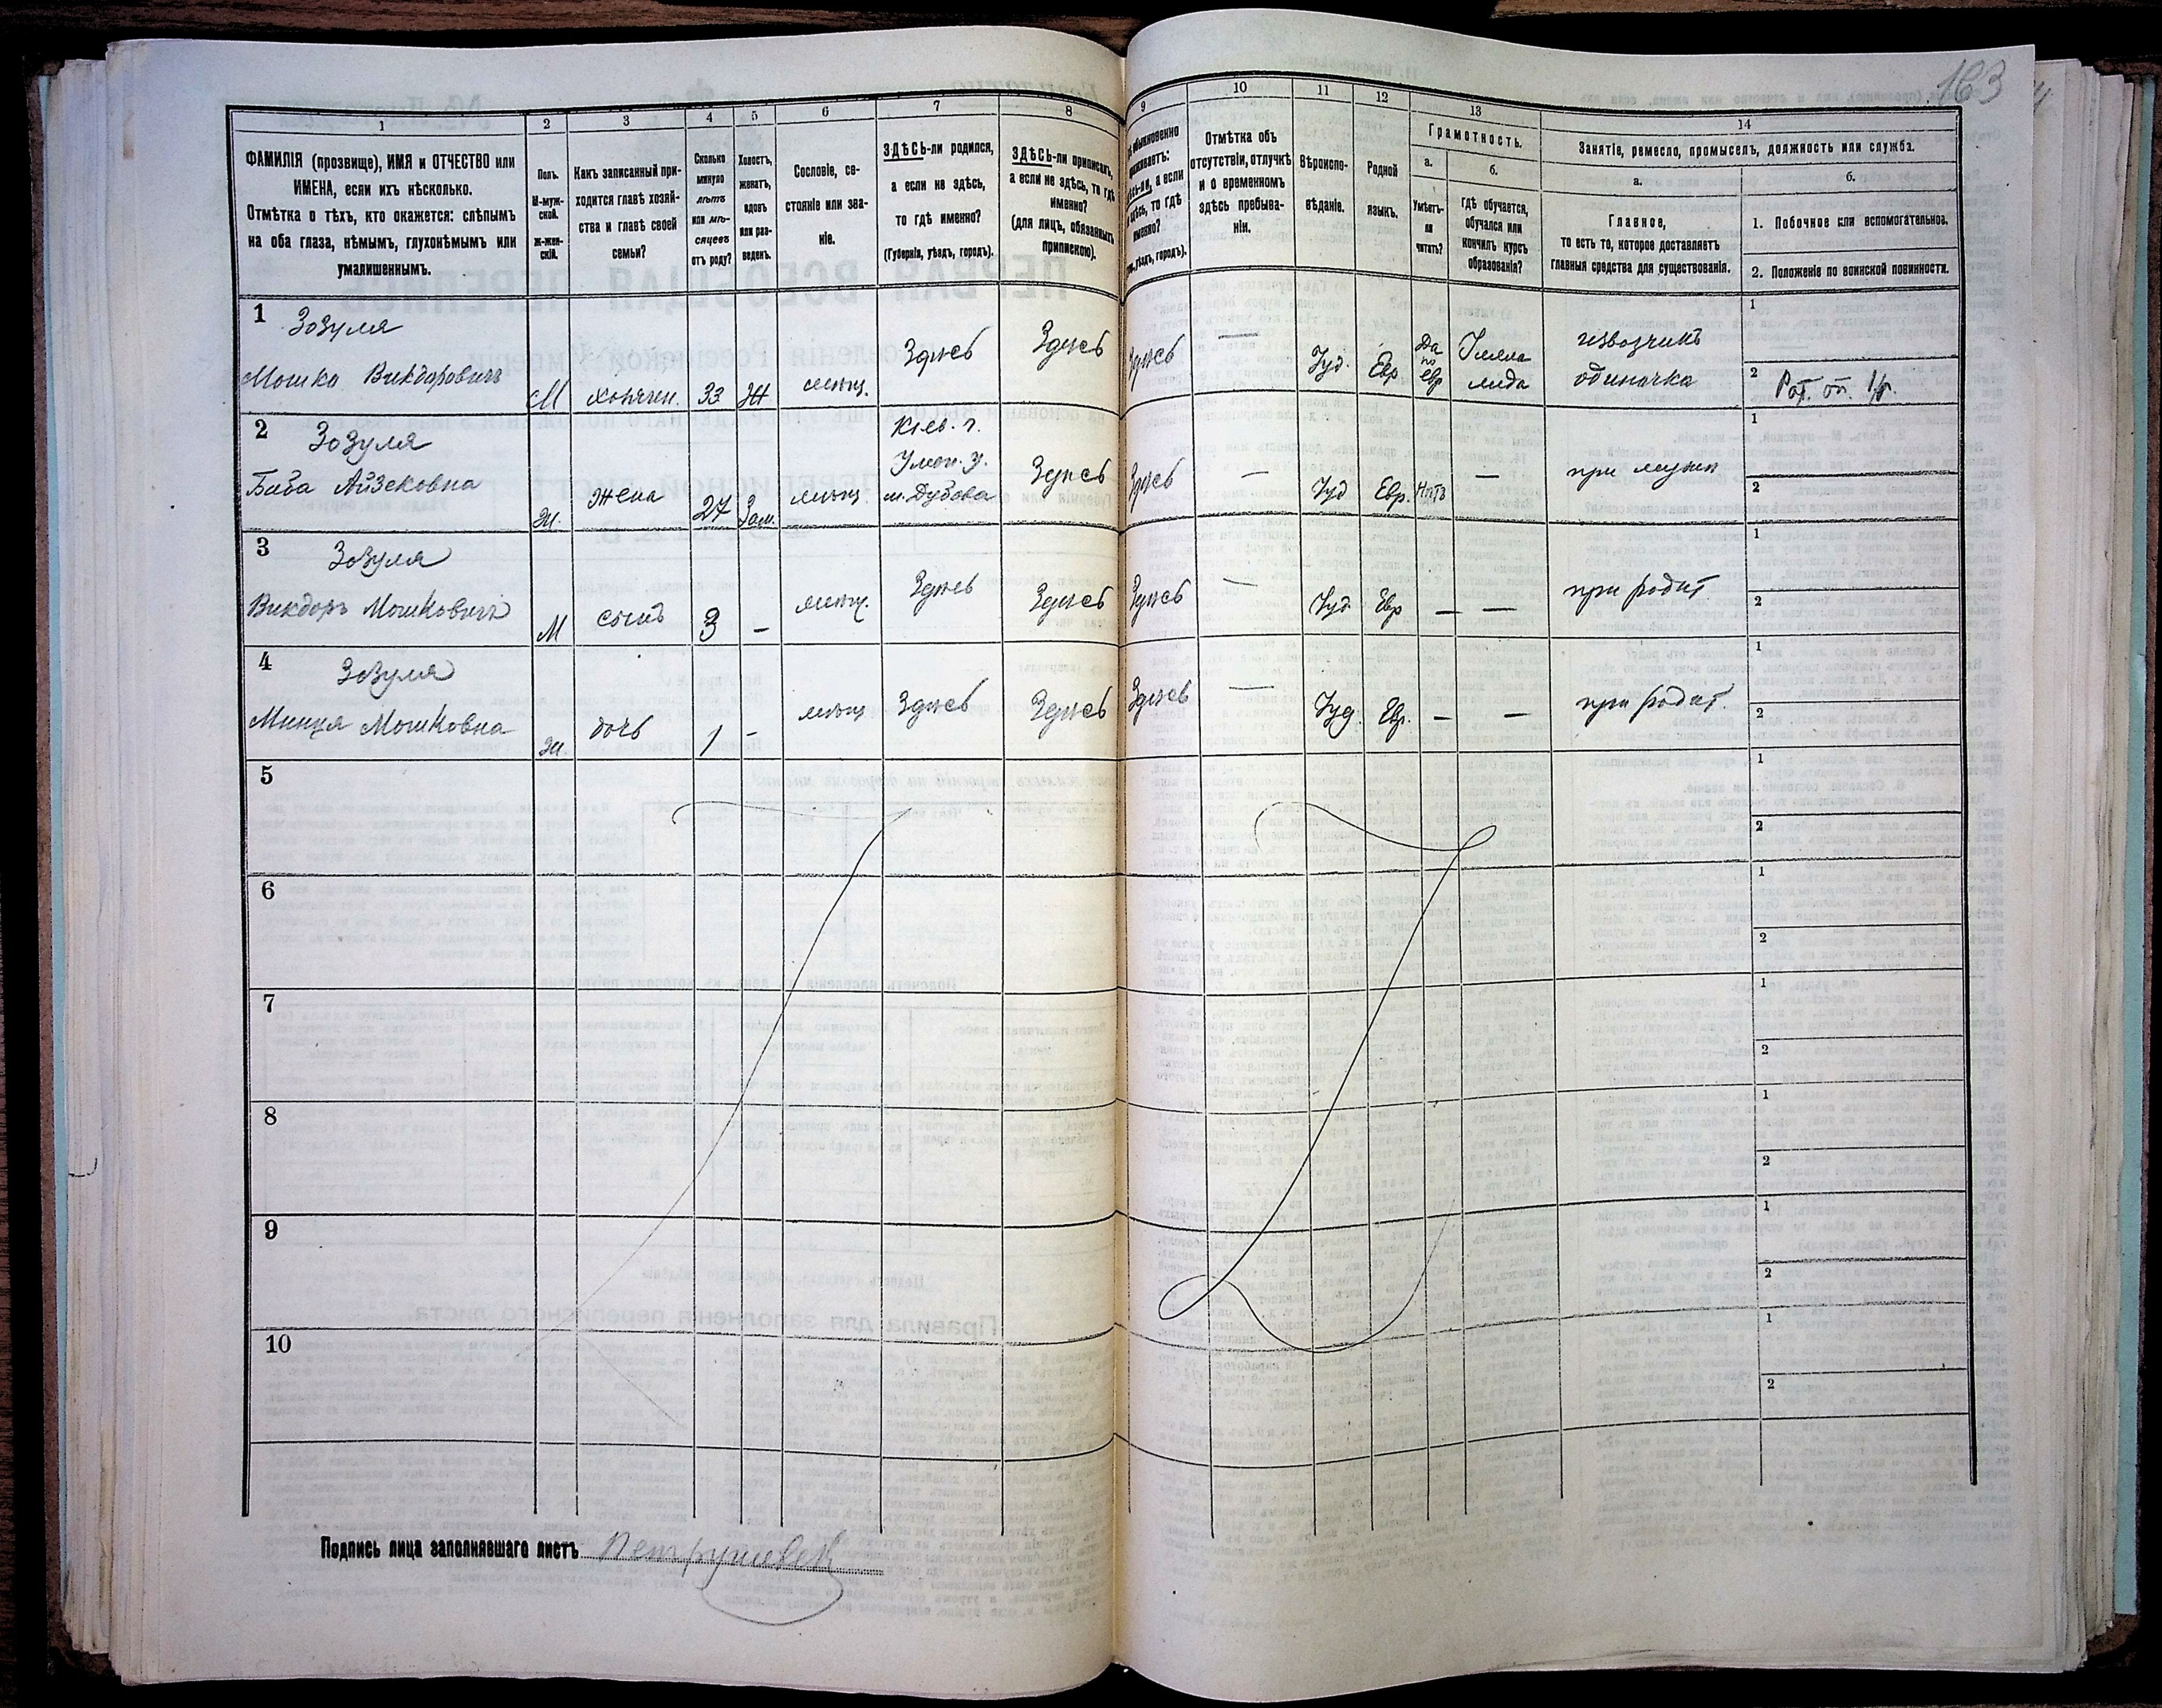 163
1
2
3
4
5
6
7
8
9
10
11
12
13
14
ФАМИЛІЯ (прозвище), ИМЯ и ОТЧЕСТВО или
ИМЕНА, если ихъ нѣсколько.
Отмѣтка о тѣхъ, кто окажется: слѣпымъ
на оба глаза, нѣмымъ, глухонѣмымъ или
умалишеннымъ.
Полъ.
М-муж-
ской.
Ж-жен-
скій.
Какъ записанный при-
ходится главѣ хозяй-
ства и главѣ своей
семьи?
Сколько
минуло
лѣтъ
или мѣ-
сяцевъ
отъ роду?
Холостъ,
женатъ,
вдовъ
или раз-
веденъ.
Сословіе, со-
стояніе или зва-
ніе.
ЗДѢСЬ-ли родился,
а если не здѣсь,
то гдѣ именно?
(Губернія, уѣздъ, городъ).
ЗДѢСЬ-ли приписанъ,
а если не здѣсь, то гдѣ
именно?
(для лицъ, обязанныхъ
припискою).
обыкновенно
а если
здѣсь, то гдѣ
именно?
уѣздъ, городъ).
Отмѣтка объ
отсутствіи, отлучкѣ
и о временномъ
здѣсь пребыва-
ніи.
Вѣроиспо-
вѣданіе.
Родной
языкъ.
Грамотность.
а.
б.
Умѣетъ-
ли
читать?
гдѣ обучается,
обучался или
кончилъ курсъ
образованія?
Занятіе, ремесло, промыселъ, должность или служба.
а.
б.
Главное,
то есть то, которое доставляетъ
главныя средства для существованія.
1. Побочное или вспомогательное.
2. Положеніе по воинской повинности.
1 Зозуля
Мошко Викдоровичъ
М
хозяин.
33
Ж
мѣщ.
Здѣсь
Здѣсь
Здѣсь
—
Іуд.
Евр
Да
по
евр
извозчикъ
одиночка
1
2
2 Зозуля
Баба Айзековна
Ж.
жена
27
Зам.
мѣщ
Кіев. г.
Уман. у.
м. Дубова
Здѣсь
Здѣсь
—
Іуд
Евр.
Нѣтъ
—
при мужѣ
1
2
3 Зозуля
Викдоръ Мошковичъ
М
сынъ
3
—
мѣщ.
Здѣсь
Здѣсь
Здѣсь
—
Іуд.
Евр
—
—
при родит.
1
2
4 Зозуля
Минця Мошковна
Ж.
дочь
1
-
мѣщ
Здѣсь
Здѣсь
Здѣсь
—
Іуд.
Евр.
—
—
при родит.
1
2
5
1
2
6
1
2
7
1
2
8
1
2
9
1
2
10
1
2
Подпись лица заполнявшаго листъ